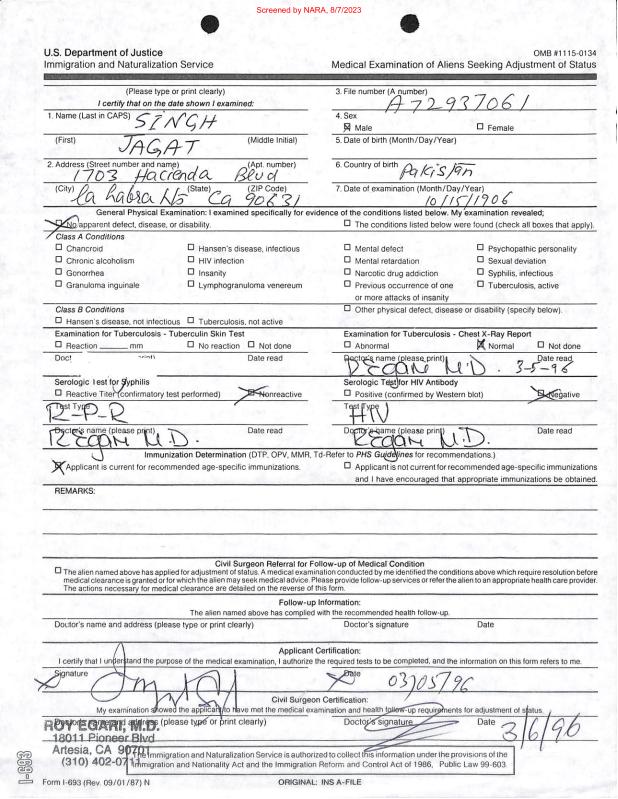 Screened by NARA, 8/7/2023
U.S. Department of Justice
Immigration and Naturalization Service
OMB #1115-0134
Medical Examination of Aliens Seeking Adjustment of Status
(Please type or print clearly)
I certify that on the date shown I examined:
3. File number (A number)
A72937061
1. Name (Last in CAPS) SINGH
4. Sex
Male Female
(First) JAGAT (Middle Initial)
5. Date of birth (Month/Day/Year)
2. Address (Street number and name) (Apt. number)
1703 Hacienda Blvd
6. Country of birth Pakistan
(City) La habra H/s (State) Ca (ZIP Code) 90631
7. Date of examination (Month/Day/Year)
10/15/1906
General Physical Examination: I examined specifically for evidence of the conditions listed below. My examination revealed;
No apparent defect, disease, or disability. The conditions listed below were found (check all boxes that apply).
Class A Conditions
Chancroid Hansen's disease, infectious Mental defect Psychopathic personality
Chronic alcoholism HIV infection Mental retardation Sexual deviation
Gonorrhea Insanity Narcotic drug addiction Syphilis, infectious
Granuloma inguinale Lymphogranuloma venereum Previous occurrence of one Tuberculosis, active
or more attacks of insanity
Class B Conditions
Other physical defect, disease or disability (specify below).
Hansen's disease, not infectious Tuberculosis, not active
Examination for Tuberculosis - Tuberculin Skin Test
Reaction ______ mm No reaction Not done
Date read
Examination for Tuberculosis - Chest X-Ray Report
Abnormal Normal Not done
Doctor's name (please print) Date read
REGAN M.D. 3-5-96
Serologic Test for Syphilis
Reactive Titer (confirmatory test performed) Nonreactive
Test Type
R-P-R
Doctor's name (please print) Date read
REGAN M.D.
Serologic Test for HIV Antibody
Positive (confirmed by Western blot) Negative
Test Type
HIV
Doctor's name (please print) Date read
REGAN M.D.
Immunization Determination (DTP, OPV, MMR, Td-Refer to PHS Guidelines for recommendations.)
Applicant is current for recommended age-specific immunizations.
Applicant is not current for recommended age-specific immunizations
and I have encouraged that appropriate immunizations be obtained.
REMARKS:
Civil Surgeon Referral for Follow-up of Medical Condition
The alien named above has applied for adjustment of status. A medical examination conducted by me identified the conditions above which require resolution before
medical clearance is granted or for which the alien may seek medical advice. Please provide follow-up services or refer the alien to an appropriate health care provider.
The actions necessary for medical clearance are detailed on the reverse of this form.
Follow-up Information:
The alien named above has complied with the recommended health follow-up.
Doctor's name and address (please type or print clearly) Doctor's signature Date
Applicant Certification:
I certify that I understand the purpose of the medical examination, I authorize the required tests to be completed, and the information on this form refers to me.
Signature Date
03/05/96
Civil Surgeon Certification:
My examination showed the applicant to have met the medical examination and health follow-up requirements for adjustment of status.
Doctor's name and address (please type or print clearly) Doctor's signature Date 3/6/96
ROY EGARI, M.D.
18011 Pioneer Blvd
Artesia, CA 90701
(310) 402-0711
The Immigration and Naturalization Service is authorized to collect this information under the provisions of the
Immigration and Nationality Act and the Immigration Reform and Control Act of 1986, Public Law 99-603.
I-693
Form I-693 (Rev. 09/01/87) N
ORIGINAL: INS A-FILE